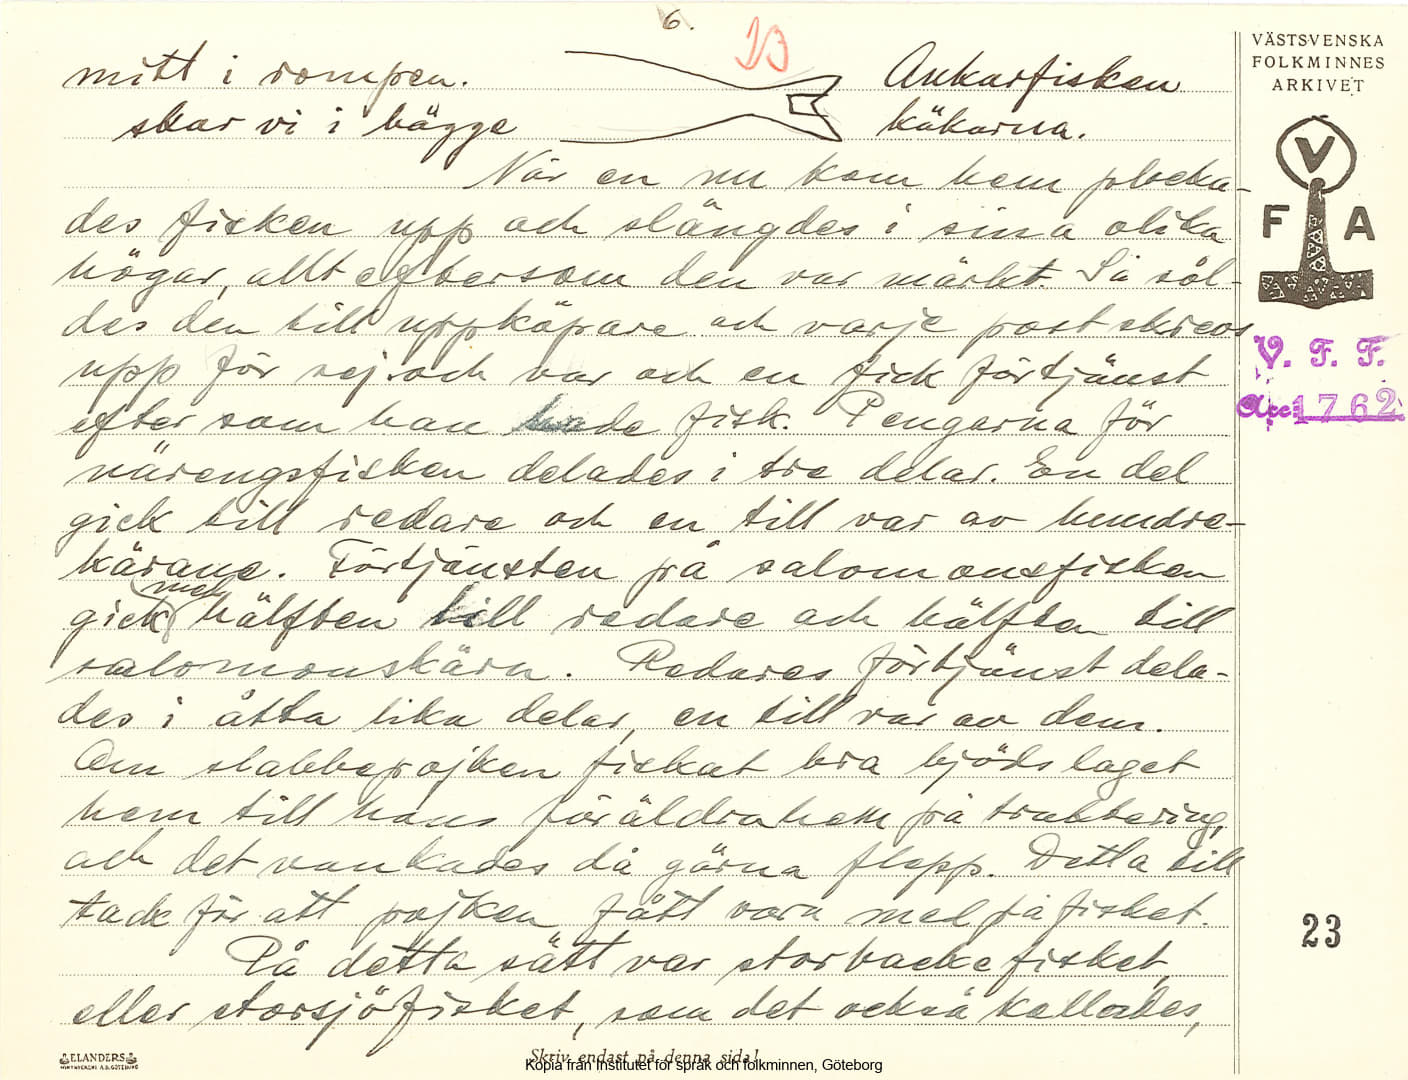 6.
23
mitt i rompen.
Ankarfisken
skar vi i bägge
käkarna.
När en nu kom hem plocka-
des fisken upp och slängdes i sina olika
högar, allt eftersom den var märkt. Så söl-
des den till uppköpare och varje post skrevs
upp för sej och var och en fick förtjänst
efter som han hade fisk. Pengarna för
närengsfisken delades i tre delar. En del
gick till redare och en till var av hundra-
kärane. Förtjänsten på salomonsfisken
gick med hälften till redare och hälften till
salomonskärn. Redares förtjänst dela-
des i åtta lika delar, en till var av dem.
Om slabbepojken fiskat bra bjöds laget
hem till hans föräldrahem på traktering,
och det vankades då gärna flepp. Detta till
tack för att pojken fått vara med på fisket.
På detta sätt var storbackefisket,
eller storsjöfisket, som det också kallades,
VÄSTSVENSKA
FOLKMINNES
ARKIVET
V
F A
V. F. F.
Acc: 1762
23
ELANDERS
Skriv endast på denna sida!
Kopia från Institutet för språk och folkminnen, Göteborg